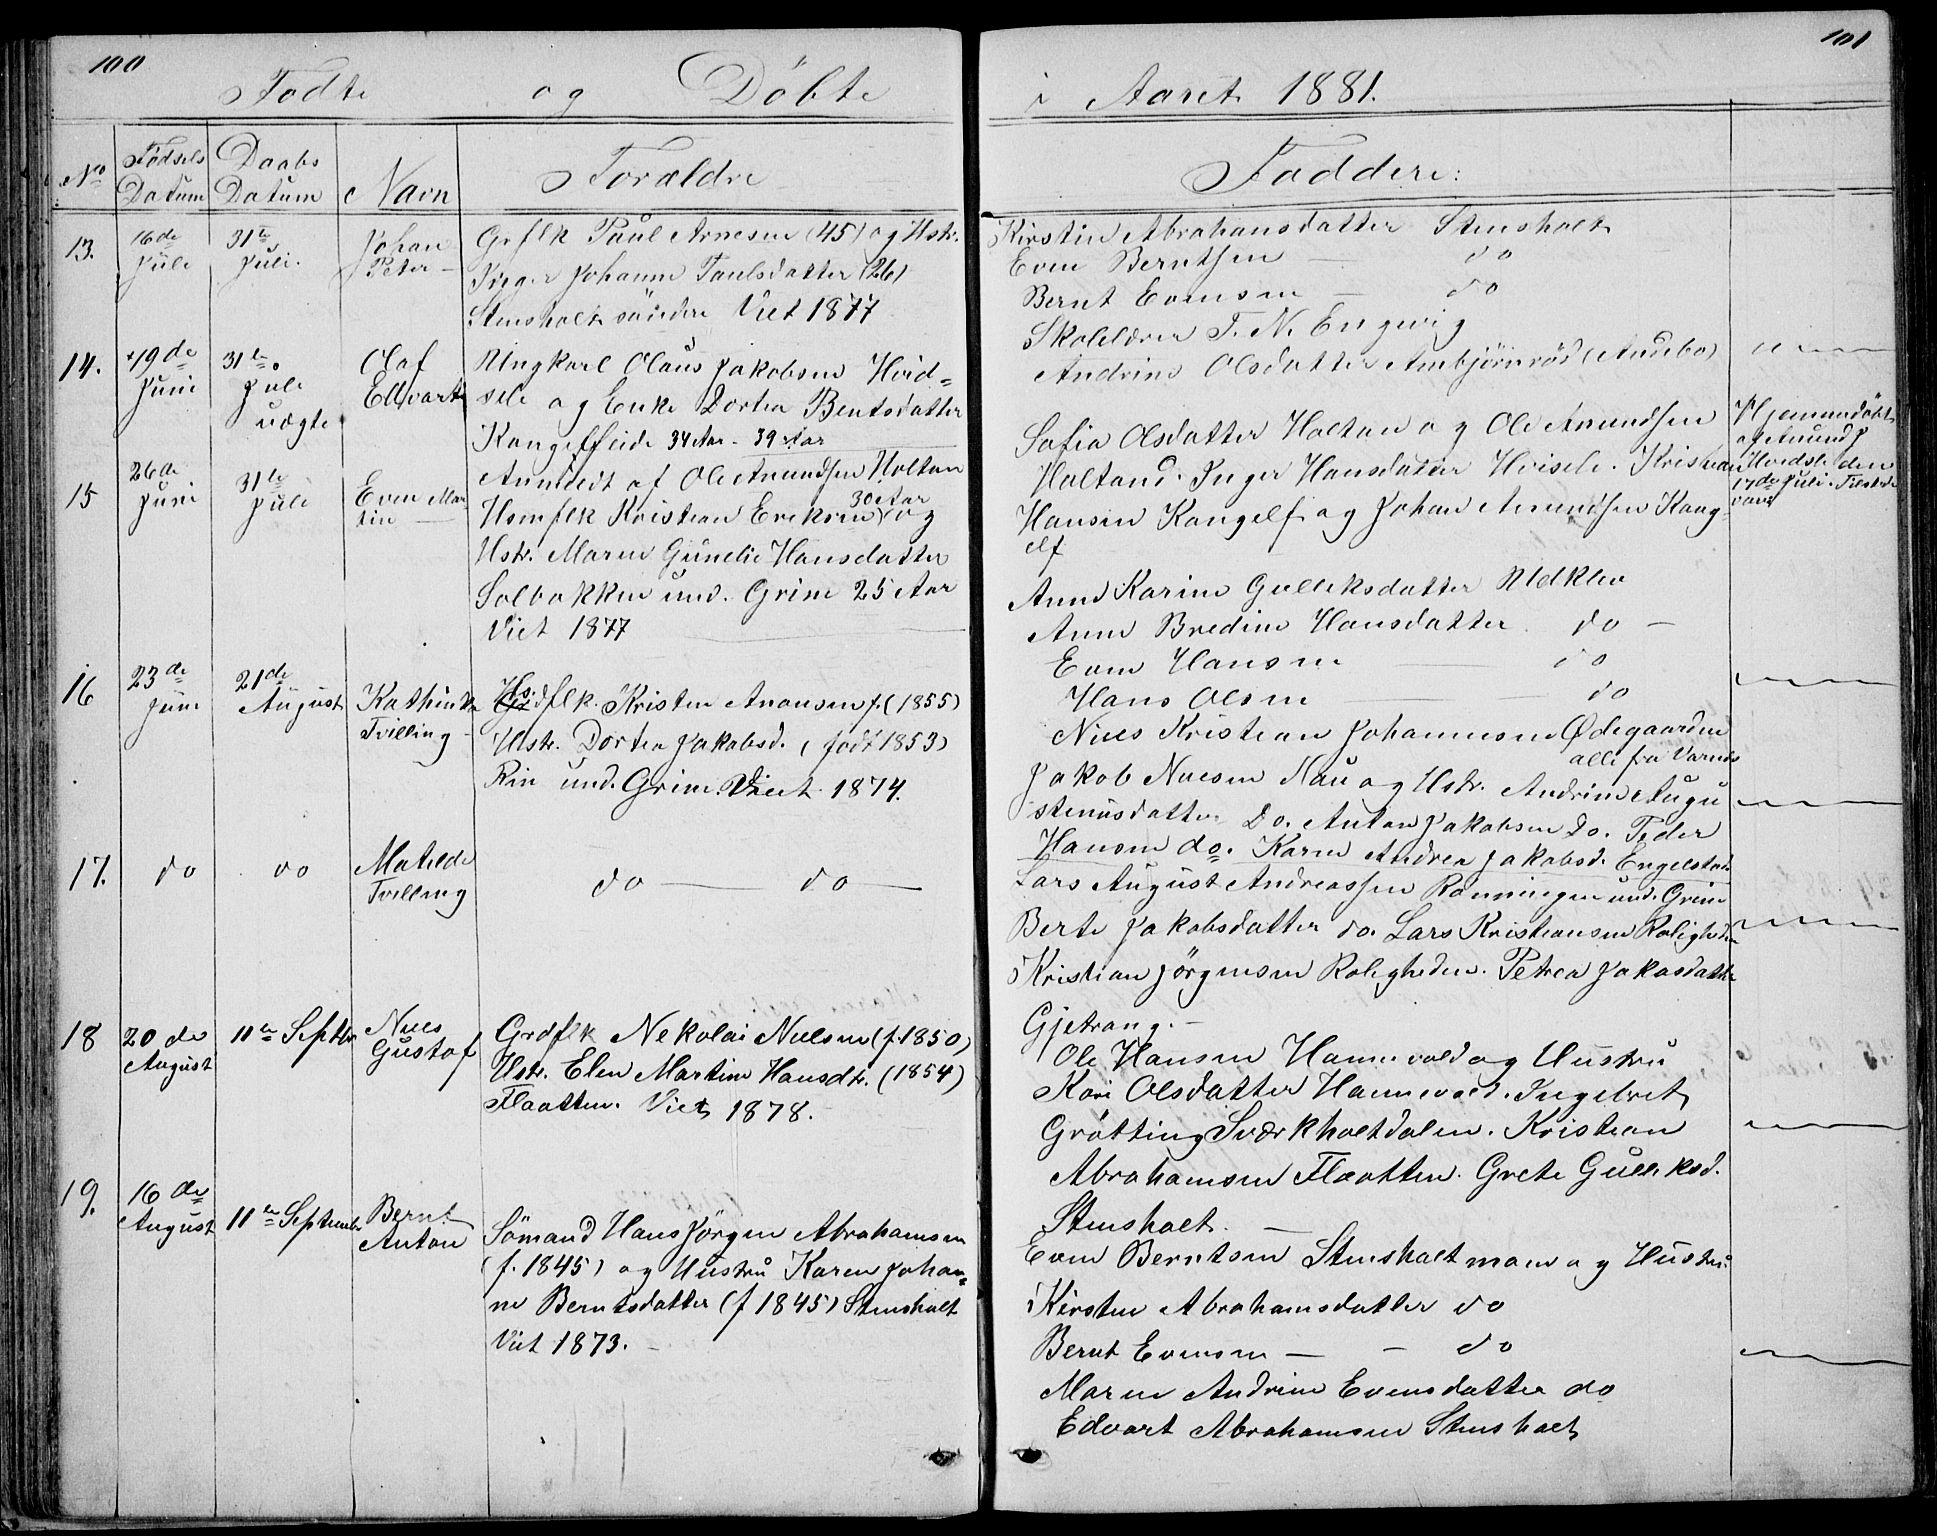 100
Födte og Döbte
No
Fødsels Datum
Daabs Datum
Navn
Forældre
13.
16de Juli
31te Juli.
Johan Peter –
Grflk Paul Arnesen (45) og Hstr.
Inger Johanne Paulsdatter (26)
Stensholt söndre Viet 1877
14.
19de Juni
31te Juli uægte
Olaf Edvart
Ungkarl Olaus Jakobsen Hvid=
sele og Enke Dortea Bentsdatter
Kangelf Eide 34 Aar – 39 Aar
Anmeldt af Ole Amundsen Holtan
15
26de Juni
31te Juli
Even Martin –
Hsmflk Kristian Eriksen 30 Aar og
Hstr. Maren Gunelie Hansdatter
Solbakken und. Grim 25 Aar
Viet 1877
16
23de Juni
21de August
Kathinka Tvilling –
Hs.
flk. Kristen Anonsen f. (1855)
Hstr. Dortea Jakobsd. (født 1853)
Rin und. Grim. Viet 1874.
17.
do
do
Matilde Tvilling
do – do –
18
20de August
11te Septbr
Niels Gustaf
Grdflk Nekolai Nielsen (f. 1850)
Hstr. Elen Martine Hansdtr. (1854)
Flaatten. Viet 1878.
19.
16de August
11te September
Bernt Anton
Sömand Hans Jörgen Abrahamsen
(f. 1845) og Hustru Karen Johan=
ne Berntsdatter (f 1845) Stensholt
Viet 1873. –
101
i Aaret 1881.
Faddere:
Kirstin Abrahamsdatter Stensholt
Even Berntsen – do
Bernt Evensen – do
Skolelærer T. N. Engevig
Andrine Olsdatter Ambjörnröd (Andebo)
Sofia Olsdatter Holtan og Ole Amundsen
Holtand. Inger Hansdatter Hvisele. Kristian
Hansen Kangelf og Johan Amundsen Kang=
elf
Hjemmedöbt
af Amund J
Hvidsle den
17de Juli.
Anne Karine Gulleksdatter Udklev
Anne Bredine Hansdatter do –
Even Hansen do
Hans Olsen do
Niels Kristian Johannesen Ødegaarden
alle fra Varnes
Jakob Nielsen Nau og Hstr. Andrine Augu
stinusdatter Do. Anton Jakobsen Do. Peder
Hansen do. Karen Andrea Jakobsd. Engelstad
Lars August Andreassen Rönningen und. Grim
Berte Jakobsdatter do. Lars Kristiansen Roligheden
Kristian Jörgensen Roligheden. Petrea Jakobsdatter
Gjetrang. –
Ole Hansen Hannevold og Hustru
Kari Olsdatter Hannevold. Ingebret
Gråtting Sværkholtdalen. Kristian
Abrahamsen Flaatten. Grete Gulleksd.
Stensholt. –
Even Berntsen Stensholt mand og Hustru
Kirsten Abrahamsdatter do
Bernt Evensen – – do
Maren Andrine Evensdatter do
Edvart Abrahamsen Stensholt